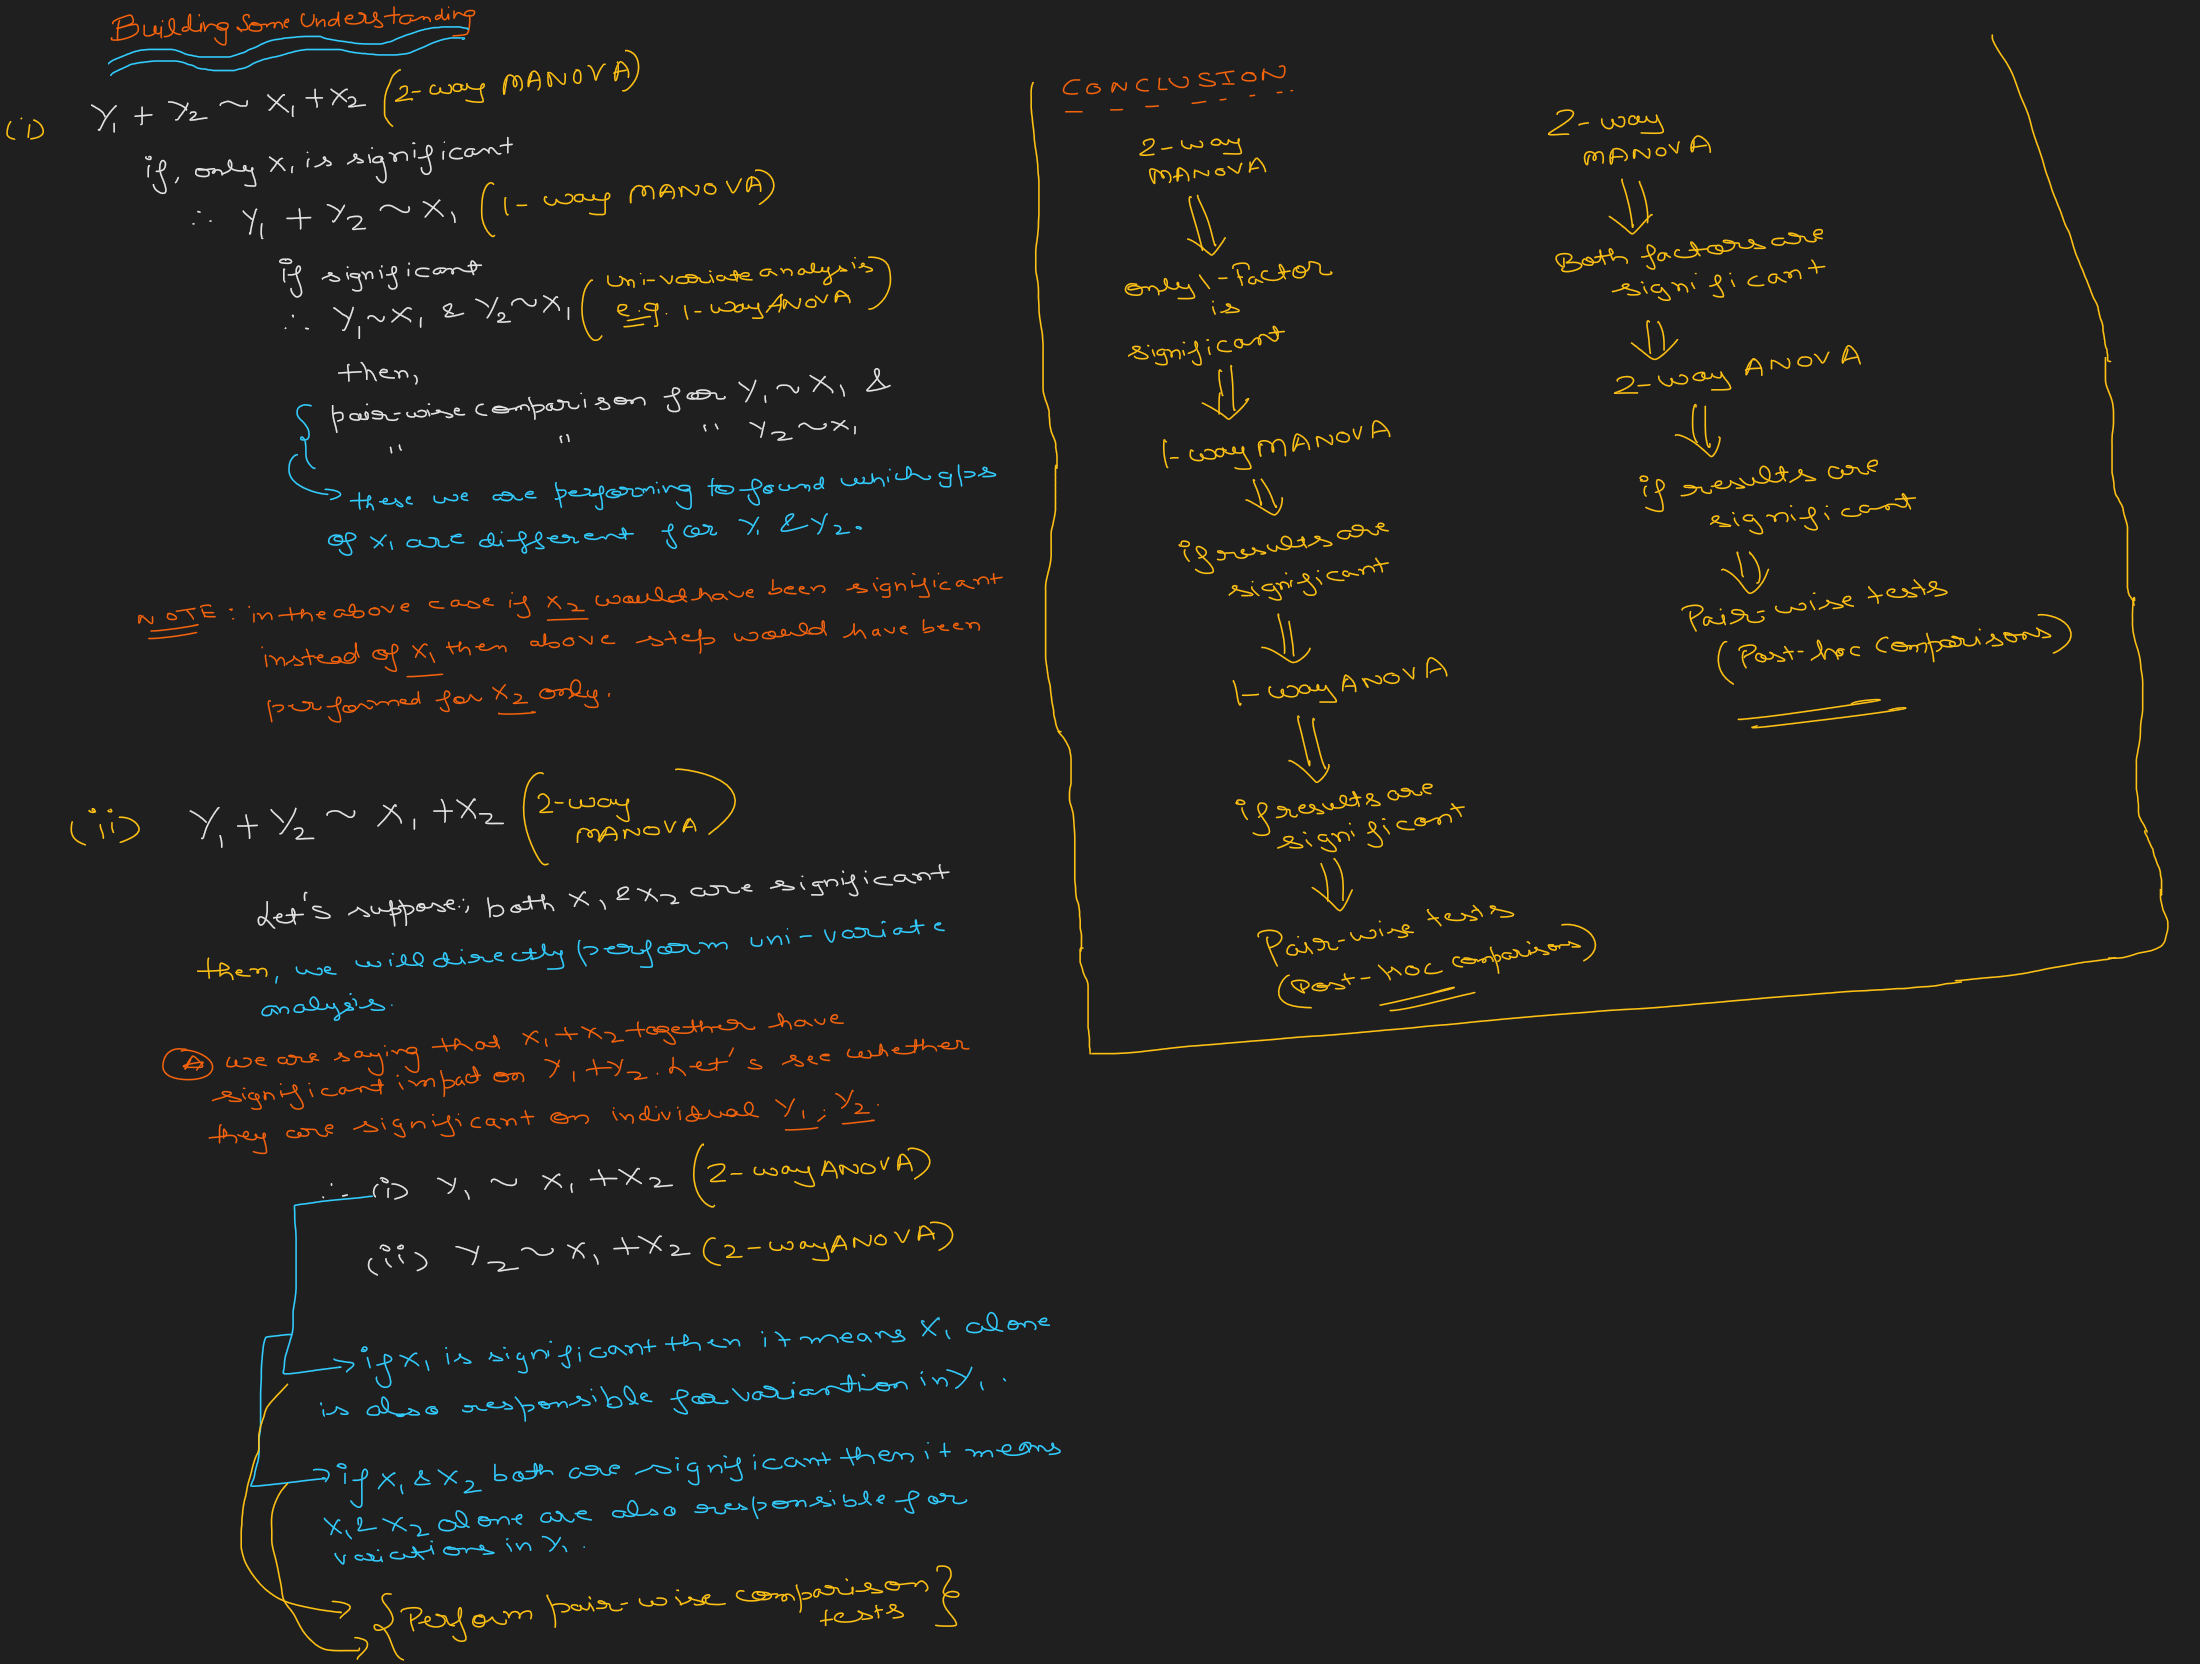 Building Some Understanding
(i) Y₁ + Y₂ ~ X₁ + X₂ (2-way MANOVA)
if, only X₁ is significant
∴ Y₁ + Y₂ ~ X₁ (1-way MANOVA)
if significant
∴ Y₁ ~ X₁ & Y₂ ~ X₁ (uni-variate analysis
e.g. 1-way ANOVA)
then,
pair-wise comparison for Y₁ ~ X₁ &
" " " Y₂ ~ X₁
→ these we are performing to found which g/ps
of X₁ are different for Y₁ & Y₂.
NOTE: in the above case if X₂ would have been significant
instead of X₁ then above step would have been
performed for X₂ only.
(ii) Y₁ + Y₂ ~ X₁ + X₂ (2-way
MANOVA)
Let's suppose; both X₁ & X₂ are significant
then, we will directly perform uni-variate
analysis.
we are saying that X₁ + X₂ together have
significant impact on Y₁ + Y₂. Let's see whether
they are significant on individual Y₁; Y₂.
∴ (i) Y₁ ~ X₁ + X₂ (2-way ANOVA)
(ii) Y₂ ~ X₁ + X₂ (2-way ANOVA)
→ if X₁ is significant then it means X₁ alone
is also responsible for variantion in Y₁.
→ if X₁ & X₂ both are significant then it means
X₁ & X₂ alone are also responsible for
variations in Y₁.
→ {Perform pair-wise comparison
tests}
CONCLUSION
2-way
MANOVA
⇓
only 1-Factor
is
significant
⇓
1-way MANOVA
⇓
if results are
significant
⇓
1-way ANOVA
⇓
if results are
significant
⇓
Pair-wise tests
(Post-hoc comparisons)
2-way
MANOVA
⇓
Both factors are
significant
⇓
2-way ANOVA
⇓
if results are
significant
⇓
Pair-wise tests
(Post-hoc comparisons)